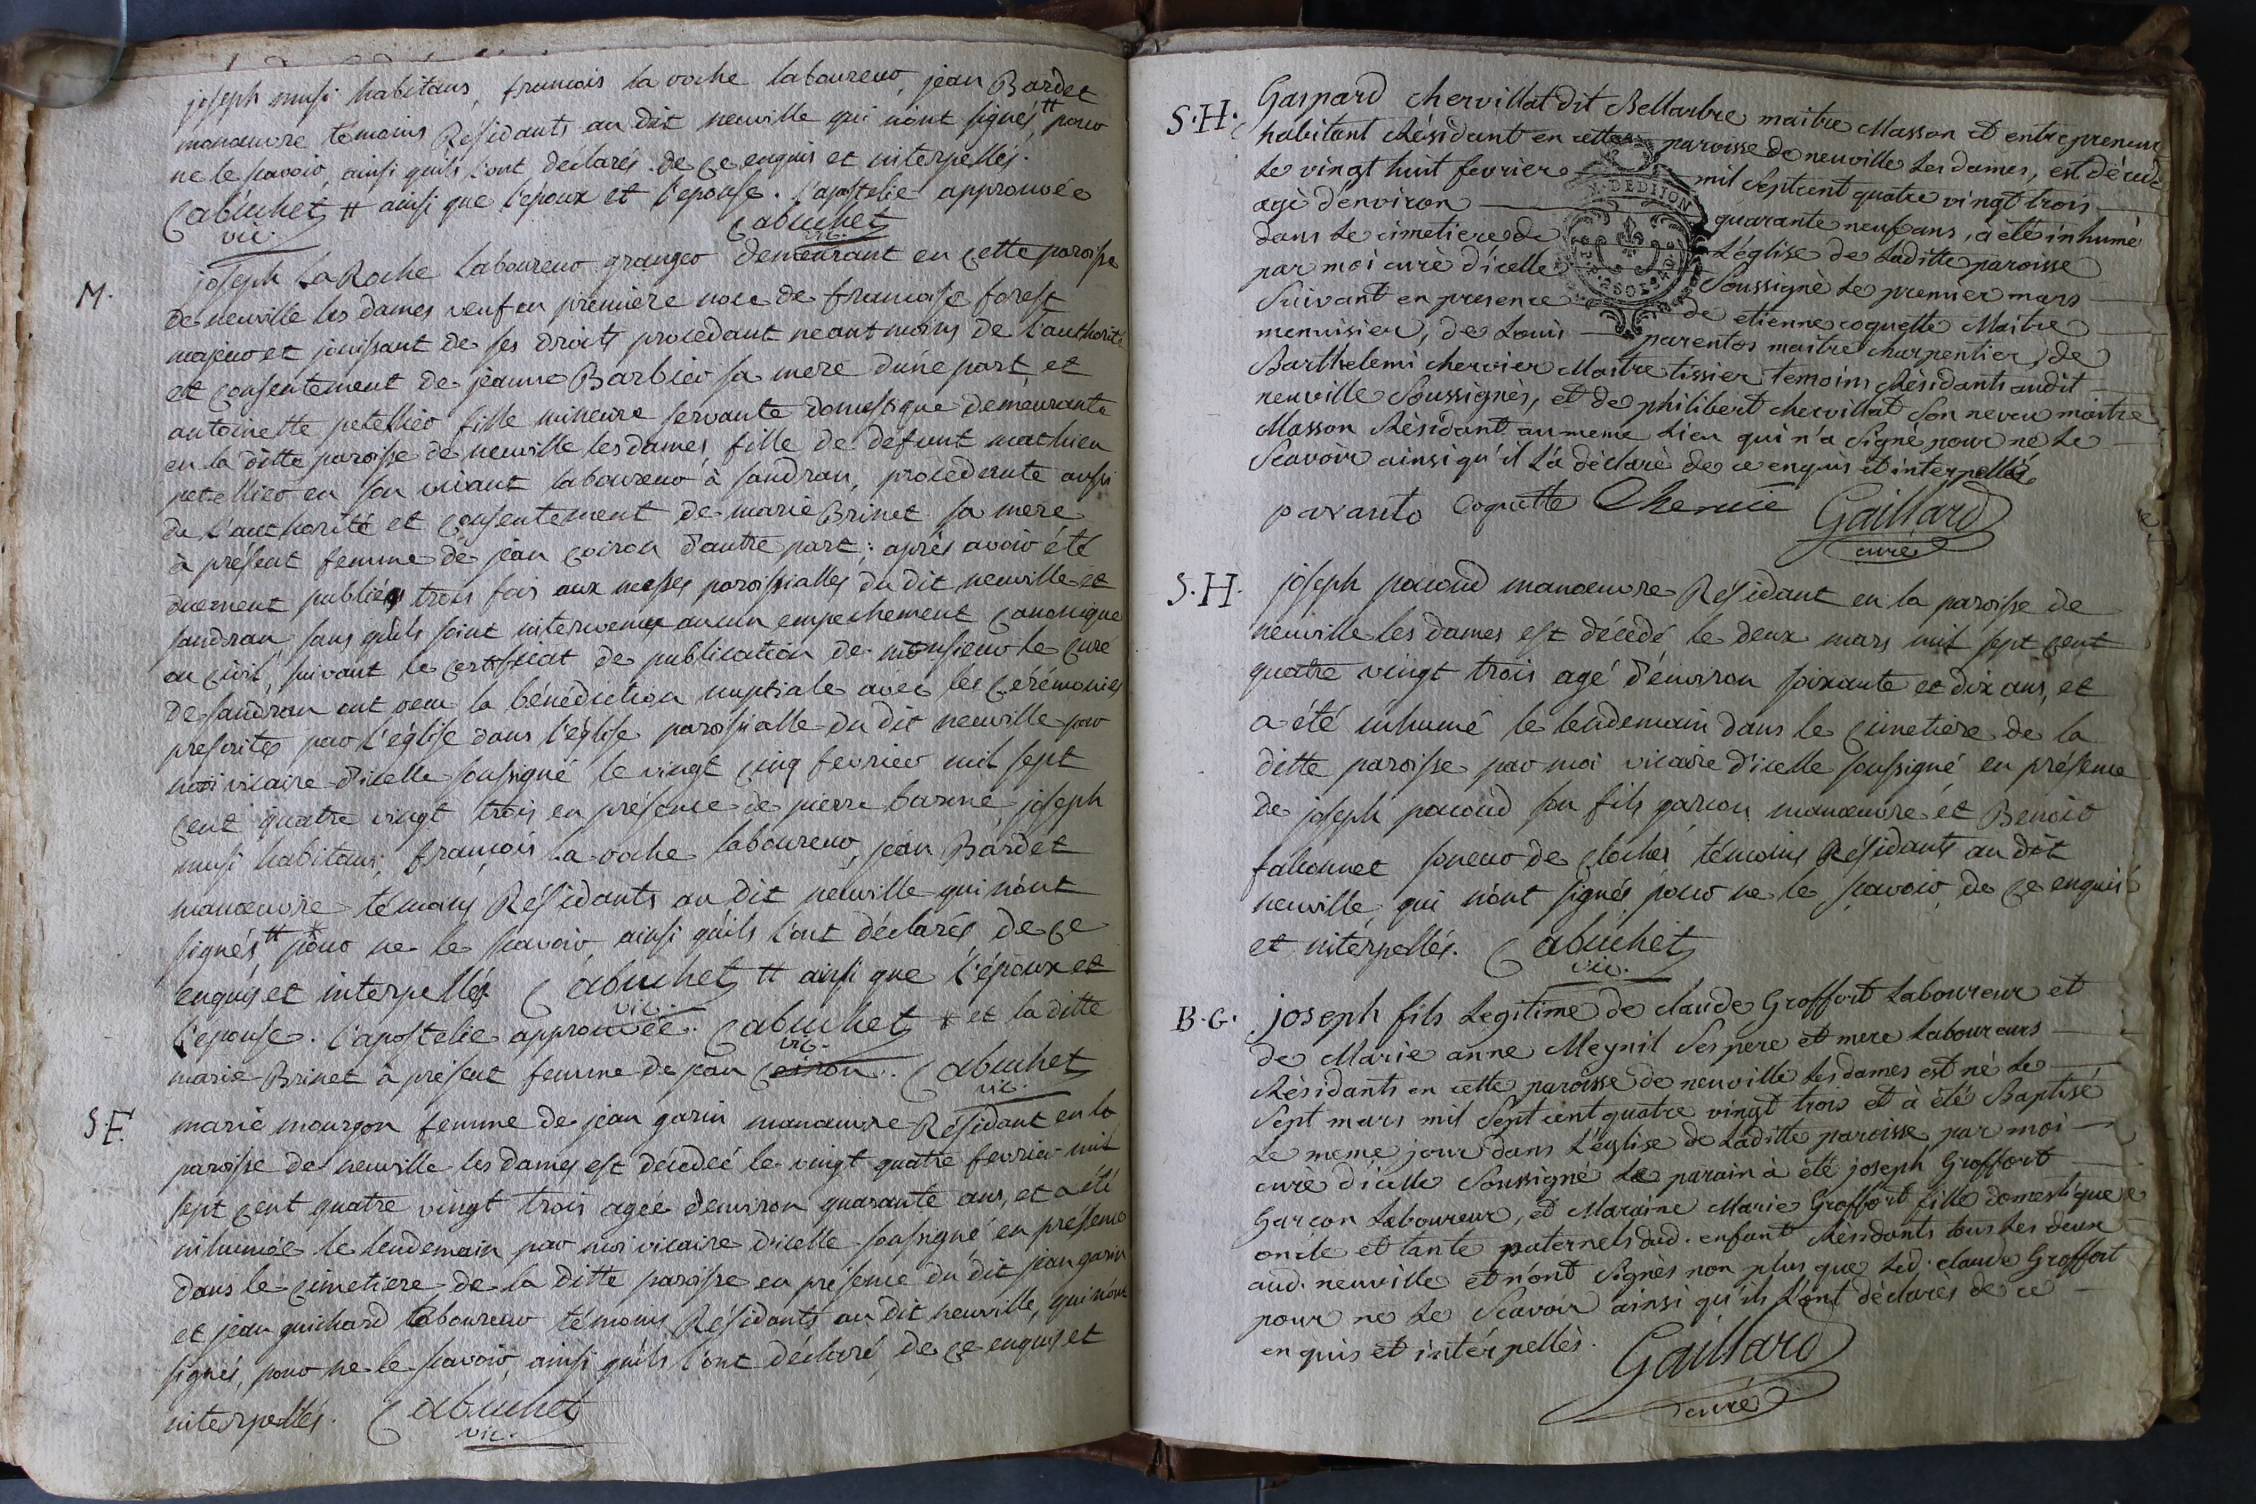 joseph musi habitans, francois la roche laboureur, jean Bardet
manœuvre temoins Résidants au dit neuville qui n'ont signés # pour
ne le scavoir, ainsi quils l'ont déclarés de ce enquis et interpellés.
Cabuchet # ainsi que l'epoux et l'epouse. l'apostelie approuvée
vic. Cabuchet
vic.
M. joseph La Roche Laboureur granger demeurant en cette paroisse
de neuville les dames veuf en premiere noce de francoise forest
majeur et jouissant de ses droits procedant neantmoins de l'authorité
et consentement de jeanne Barbier sa mere d'une part, et
antoinette petellier fille mineure servante domestique demeurante
en la ditte paroisse de neuville les dames, fille de defunt mathieu
petellier en son vivant laboureur à sandran, procedente aussi
de l'authorité et consentement de marie Brinet sa mere
à présent femme de jean coiron d'autre part; après avoir été
duement publiés trois fois aux messes paroissialles du dit neuville et
sandran, sans qu'ils soint intervenu aucun empechement canonique
ou civil, suivant le certificat de publication de monsieur le curé
de sandran ont recu la bénédiction nuptiale avec les cérémonies
prescrites par l'église dans l'église paroissialle du dit neuville par
moi vicaire d'icelle soussigné le vingt cinq fevrier mil sept
cent quatre vingt trois en présence de pierre joseph
musi habitans, francois la roche laboureur, jean Bardet
manœuvre témoins Résidants au dit neuville qui n'ont
signés # pour ne le scavoir, ainsi qu'ils l'ont déclarés de ce
enquis et interpellés. Cabuchet # ainsi que l'époux et
vic.
l'epouse. l'apostelie approuvée. Cabuchet * et la ditte
vic.
marie Brinet à présent femme de jean coiron. Cabuchet
vic.
S.F. marie mourgon femme de jean garin manœuvre Résidant en la
paroisse de neuville les dames est décedée le vingt quatre fevrier mil
sept cent quatre vingt trois agée d'environ quarante ans, et a été
inhumée le lendemain par moi vicaire d'icelle soussigné en présence
dans le cimetiere de la ditte paroisse en présence du dit jean garin
et jean guichard laboureur témoins Résidants au dit neuville, qui n'ont
signés, pour ne le scavoir, ainsi qu'ils l'ont déclaré, de ce enquis et
interpellés. Cabuchet
vic.
S.H. Gaspard chervillat dit Bellarbre maitre Masson et entrepreneur
habitant Résidant en cette paroisse de neuville les dames, est décédé
le vingt huit fevrier mil septcent quatre vingt trois
agé d'environ quarante neuf ans, a été inhumé
dans le cimetiere de L'église de Laditte paroisse
par moi curé d'icelle Soussigné le premier mars
Suivant en presence de etienne coquette Maitre
menuisier, de Louis parentos maitre charpentier, de
Barthelemi chervier Maitre tissier temoins Résidants audit
neuville Soussignés, et de philibert chervillat Son neveu maitre
Masson Résidant au meme Lieu qui n'a Signé pour ne Le
Scavoir ainsi qu'il L'a déclaré de ce enquis et interpellé.
paranto Coquette Gaillard
curé
S.H. joseph pacoud manœuvre Résidant en la paroisse de
neuville les dames est décedé le deux mars mil sept cent
quatre vingt trois agé d'environ soixante et dix ans, et
a été inhumé le lendemain dans le cimetiere de la
ditte paroisse par moi vicaire d'icelle soussigné en présence
de joseph pacoud son fils garcon manœuvre et Benoit
falconnet soneur de cloches témoins Résidants au dit
neuville, qui n'ont signés pour ne le scavoir, de ce enquis
et intérpellés. Cabuchet
vic.
B.G. joseph fils Legitime de claude Groffort Laboureur et
de Marie anne Meynil Ses pere et mere Laboureurs
Résidants en cette paroisse de neuville Les dames est né le
Sept mars mil Sept cent quatre vingt trois et à étés Baptisé
Le meme jour dans L'église de Laditte paroisse par moi
curé d'icelle Soussigné Le parain à été joseph Groffort
Garçon Laboureur, et Maraine Marie Groffort fille domestique
oncle et tante paternels dud. enfant Résidants tous Les deux
aud. neuville et n'ont Signés non plus que Led. claude Groffort
pour ne Le Scavoir ainsi qu'ils L'ont déclarés de ce
enquis et intérpellés. Gaillard
curé